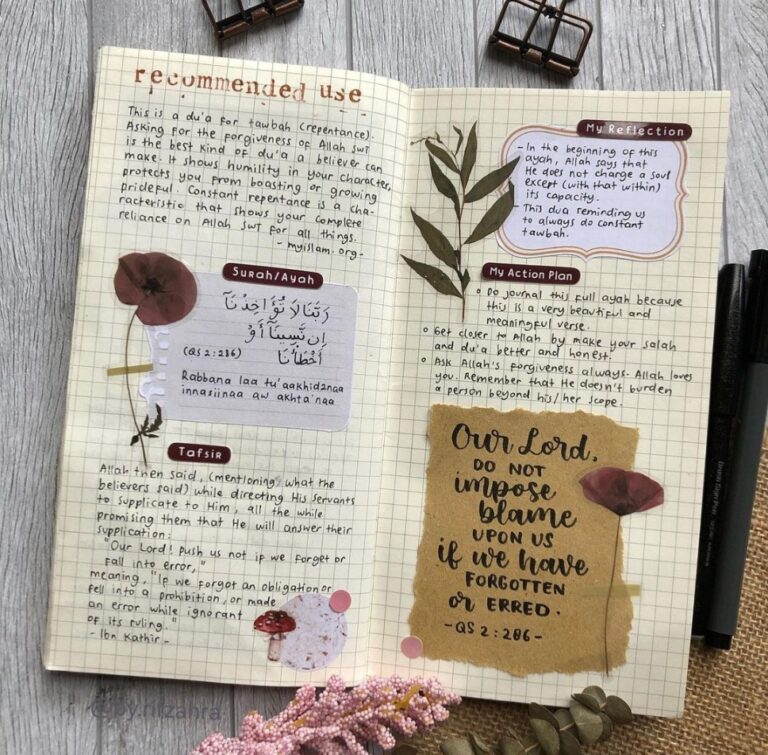 recommended use
This is a du'a for tawbah (repentance).
Asking for the forgiveness of Allah swt
is the best kind of du'a a believer can
make. It shows humility in your character,
protects you from boasting or growing
prideful. Constant repentance is a cha-
racteristic that shows your complete
reliance on Allah swt for all things.
- myislam.org -
Surah/Ayah
رَبَّنَا لَا تُؤَاخِذْنَآ
إِن نَّسِينَآ أَوْ
أَخْطَأْنَا
(QS 2:286)
Rabbana laa tu'aakhidznaa
innasiinaa aw akhta'naa
Tafsir
Allah then said, (mentioning, what the
believers said) while directing His servants
to supplicate to Him, all the while
promising them that He will answer their
supplication:
"Our Lord! push us not if we forget or
fall into error,"
meaning, "If we forgot an obligation or
fell into a prohibition, or made
an error while ignorant
of its ruling."
- Ibn Kathir -
My Reflection
- In the beginning of this
ayah, Allah says that
He does not change a soul
except (with that within)
its capacity.
- This dua reminding us
to always do constant
tawbah.
My Action Plan
Do journal this full ayah because
this is a very beautiful and
meaningful verse.
Get closer to Allah by make your salah
and du'a better and honest.
Ask Allah's forgiveness always. Allah loves
you. Remember that He doesn't burden
a person beyond his/her scope.
Our Lord,
DO NOT
impose
blame
UPON US
if we have
FORGOTTEN
or ERRED.
- QS 2:286 -